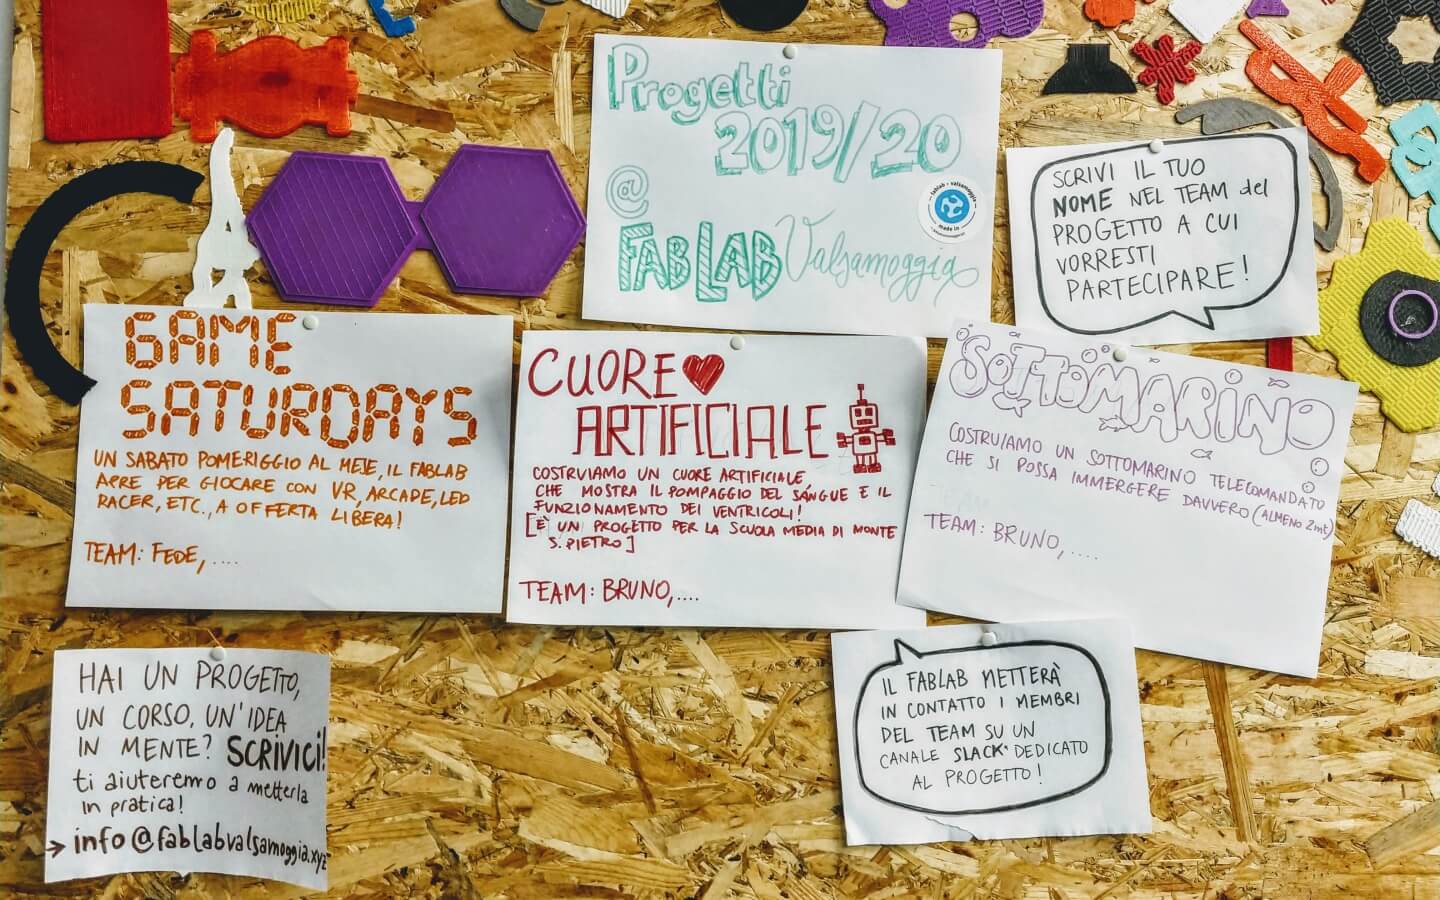 Progetti
2019/20
@
FAB LAB Valsamoggia
fablab · valsamoggia
made in
SCRIVI IL TUO
NOME NEL TEAM del
PROGETTO A CUI
VORRESTI
PARTECIPARE!
GAME
SATURDAYS
UN SABATO POMERIGGIO AL MESE, IL FABLAB
APRE PER GIOCARE CON VR, ARCADE, LED
RACER, ETC., A OFFERTA LIBERA!
TEAM: FEDE, ....
CUORE
ARTIFICIALE
COSTRUIAMO UN CUORE ARTIFICIALE,
CHE MOSTRA IL POMPAGGIO DEL SANGUE E IL
FUNZIONAMENTO DEI VENTRICOLI!
[È UN PROGETTO PER LA SCUOLA MEDIA DI MONTE
S. PIETRO]
TEAM: BRUNO, ....
SOTTOMARINO
COSTRUIAMO UN SOTTOMARINO TELECOMANDATO
CHE SI POSSA IMMERGERE DAVVERO (ALMENO 2mt)
TEAM: BRUNO, ....
HAI UN PROGETTO,
UN CORSO, UN'IDEA
IN MENTE? SCRIVICI!
ti aiuteremo a metterla
in pratica!
→ info@fablabvalsamoggia.xyz
IL FABLAB METTERÀ
IN CONTATTO I MEMBRI
DEL TEAM SU UN
CANALE SLACK* DEDICATO
AL PROGETTO!